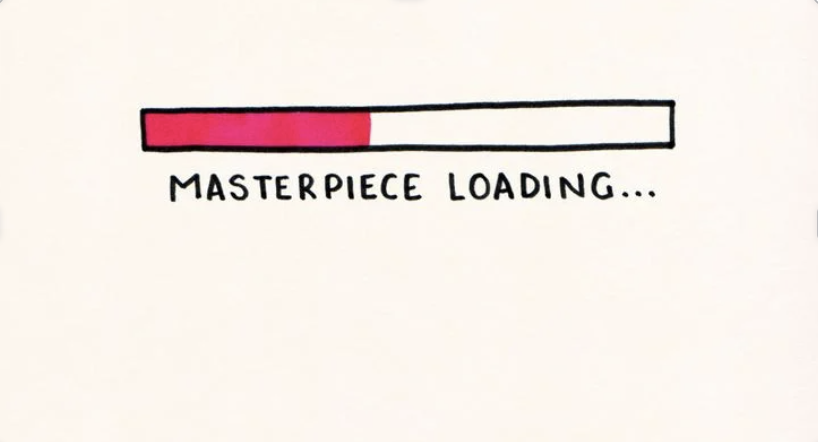 MASTERPIECE LOADING...